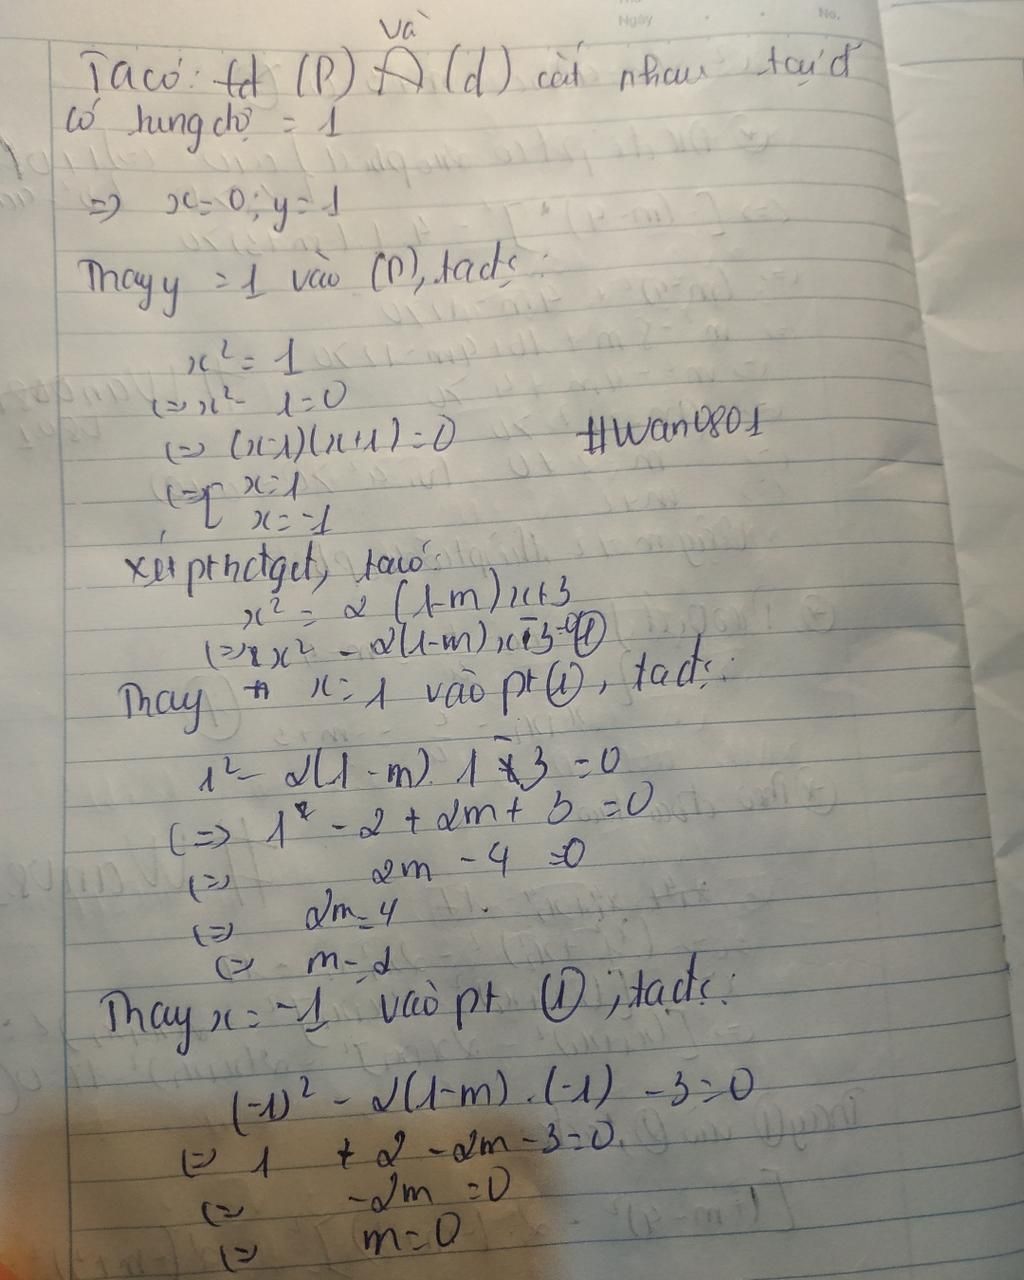 Ngày
No.
và
Ta có: (P) (d) cắt nhau tại đ
có tung độ = 1
=> x=0; y=1
Thay y = 1 vào (P), ta đc:
x² = 1
(=> x² - 1=0
(=> (x-1)(x+1)=0
#Wan0801
(=> [ x=1
x=-1
xét pthđgđ, ta có:
x² = 2 (1-m)x+3
(=> x² - 2(1-m)x-3=0 (1)
Thay x=1 vào pt (1), ta đc:
1² - 2(1-m).1 - 3 =0
(=> 1 - 2 + 2m + 3 =0
(=> 2m - 4 =0
(=> 2m=4
(=> m=2
Thay x=-1 vào pt (1), ta đc:
(-1)² - 2(1-m).(-1) -3=0
(=> 1 + 2 - 2m - 3=0
(=> -2m =0
(=> m=0